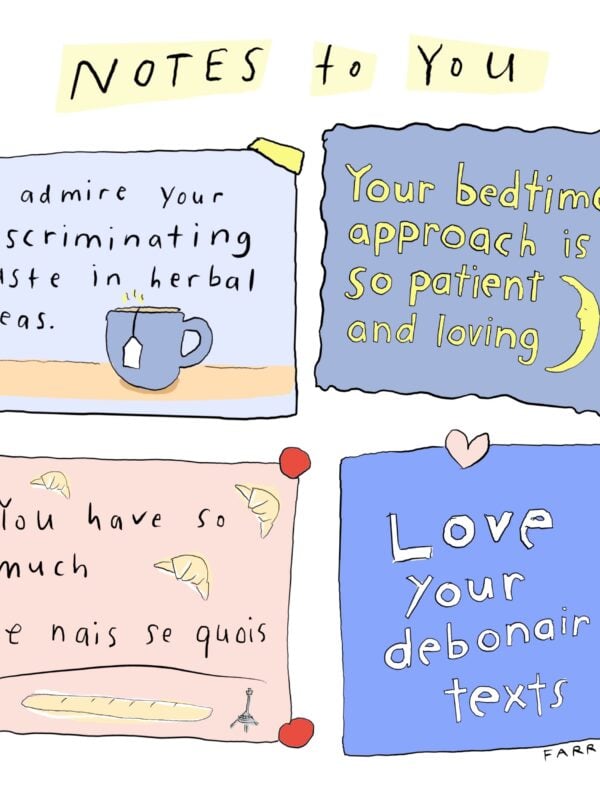 NOTES to YOU
admire your
scriminating
aste in herbal
eas.
Your bedtime
approach is
so patient
and loving
You have so
much
e nais se quois
Love
your
debonair
texts
FARR